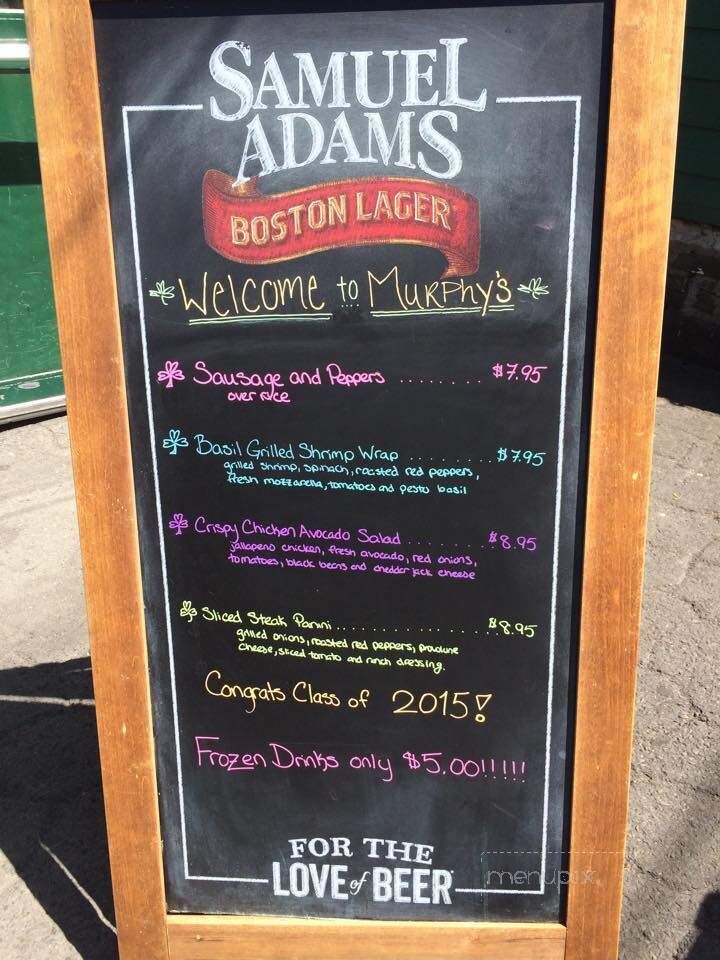 SAMUEL
ADAMS
BOSTON LAGER
Welcome to Murphy's
Sausage and Peppers ........ $7.95
over rice
Basil Grilled Shrimp Wrap .......... $7.95
grilled shrimp, spinach, roasted red peppers,
fresh mozzarella, tomatoes and pesto basil
Crispy Chicken Avocado Salad .......... $8.95
jalapeno chicken, fresh avocado, red onions,
tomatoes, black beans and chedder jack cheese
Sliced Steak Panini ................. $8.95
grilled onions, roasted red peppers, provolune
cheese, sliced tomato and ranch dressing.
Congrats Class of 2015!
Frozen Drinks only $5.00!!!!!
FOR THE
LOVE of BEER
menupix